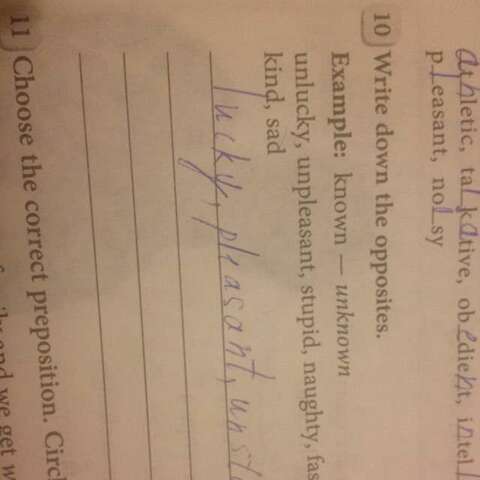 athletic, talkative, obedient, intel
pleasant, noisy
10 Write down the opposites.
Example: known — unknown
unlucky, unpleasant, stupid, naughty, fas
kind, sad
lucky, pleasant, unst
11 Choose the correct preposition. Circl
and we get w